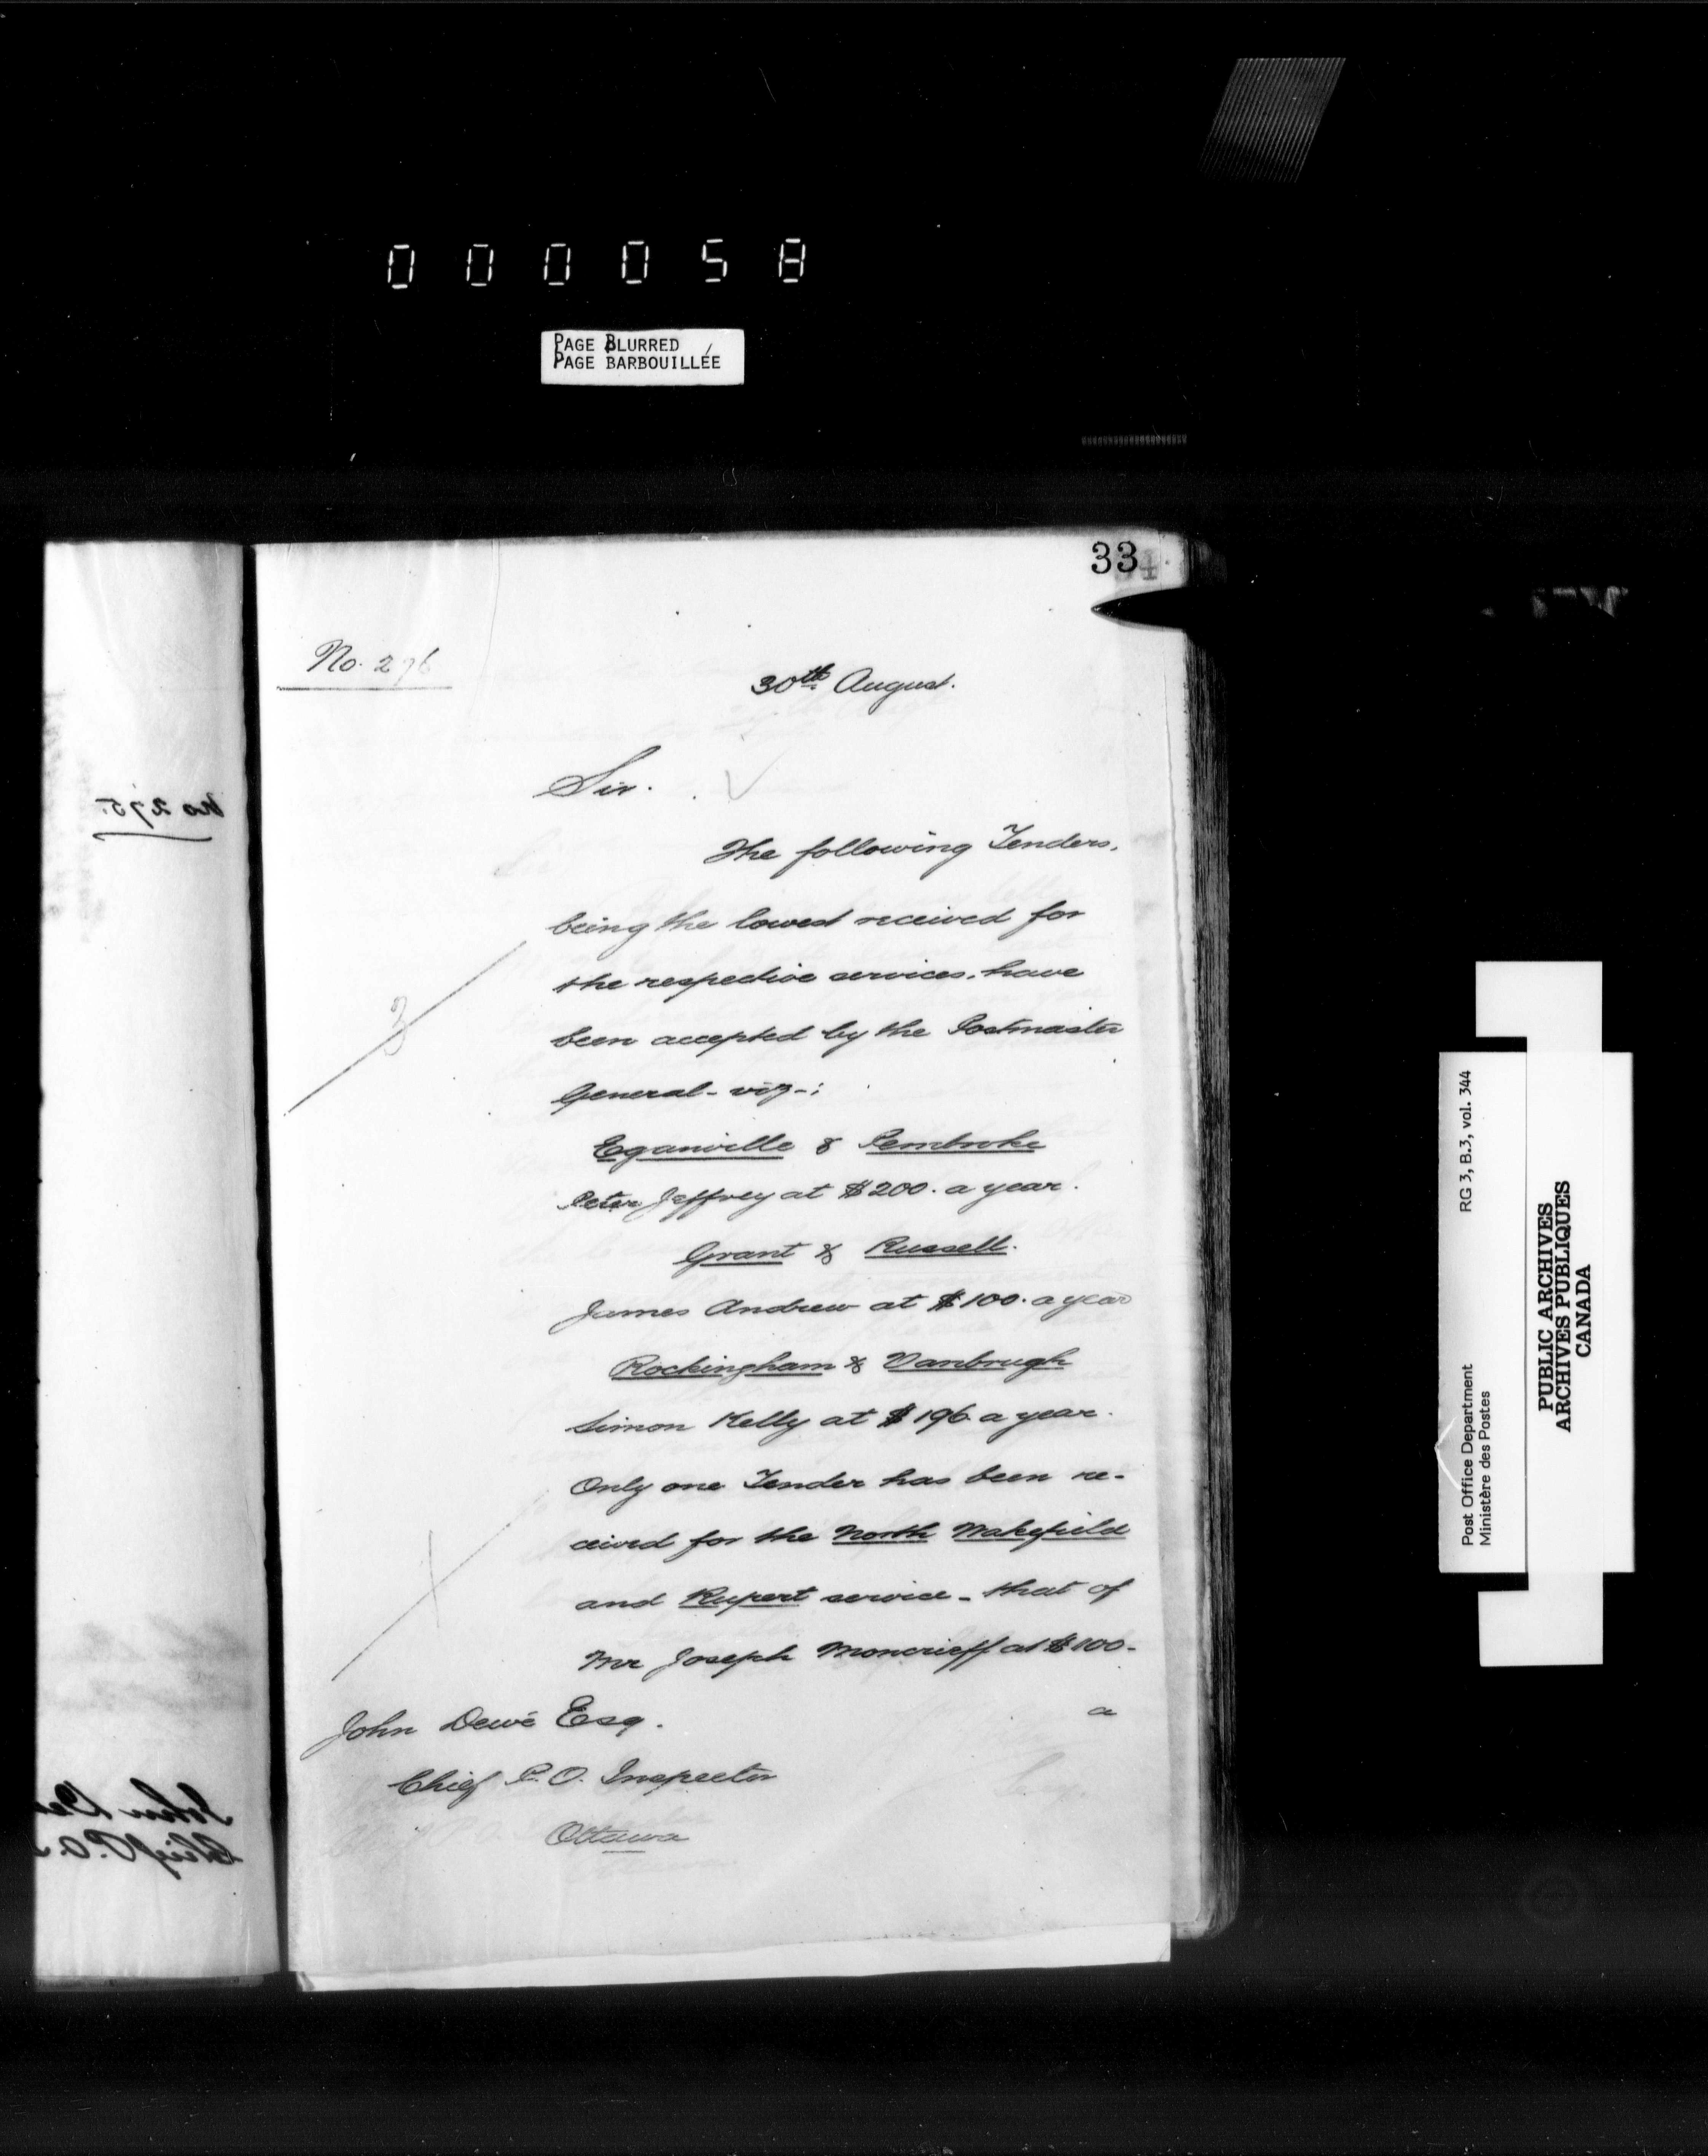 000058
PAGE BLURRED
PAGE BARBOUILLÉE
33
No. 276
30th August.
Sir.
The following Tenders,
being the lowest received for
the respective services, have
3
been accepted by the Postmaster
General - viz -:
Eganville & Pembroke
Peter Jeffrey at $200. a year.
Grant & Russell.
James Andrew at $100. a year
Rockingham & Vanbrugh
Simon Kelly at $196 a year.
Only one Tender has been re-
ceived for the North Wakefield
and Rupert service - that of
Mr Joseph Moncrieff at $100-
a
John Dewé Esq.
Chief P.O. Inspector
Ottawa
No 275.
John De
Chief P.O.
Post Office Department RG 3, B.3, vol. 344
Ministère des Postes
PUBLIC ARCHIVES
ARCHIVES PUBLIQUES
CANADA